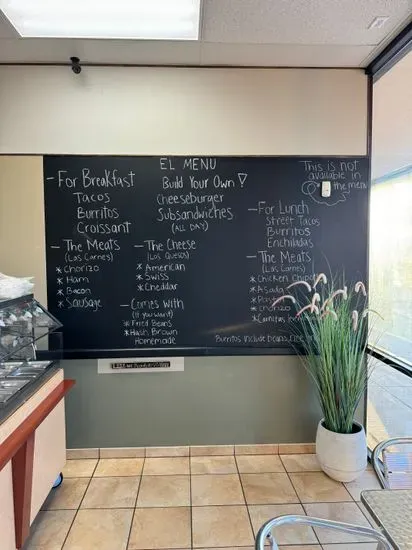 EL MENU
This is not
available in
the menu
- For Breakfast
Tacos
Burritos
Croissant
Build Your Own!
Cheeseburger
Subsandwiches
(ALL DAY)
- The Meats
(Las Carnes)
* Chorizo
* Ham
* Bacon
* Sausage
- The Cheese
(Los Quesos)
* American
* Swiss
* Cheddar
- Comes with
(if you want)
* Fried Beans
* Hash Brown
Homemade
- For Lunch
Street Tacos
Burritos
Enchiladas
- The Meats
(Las Carnes)
* Chicken Chipotle
* Asada
* Chorizo
* Carnitas
Burritos include beans, rice